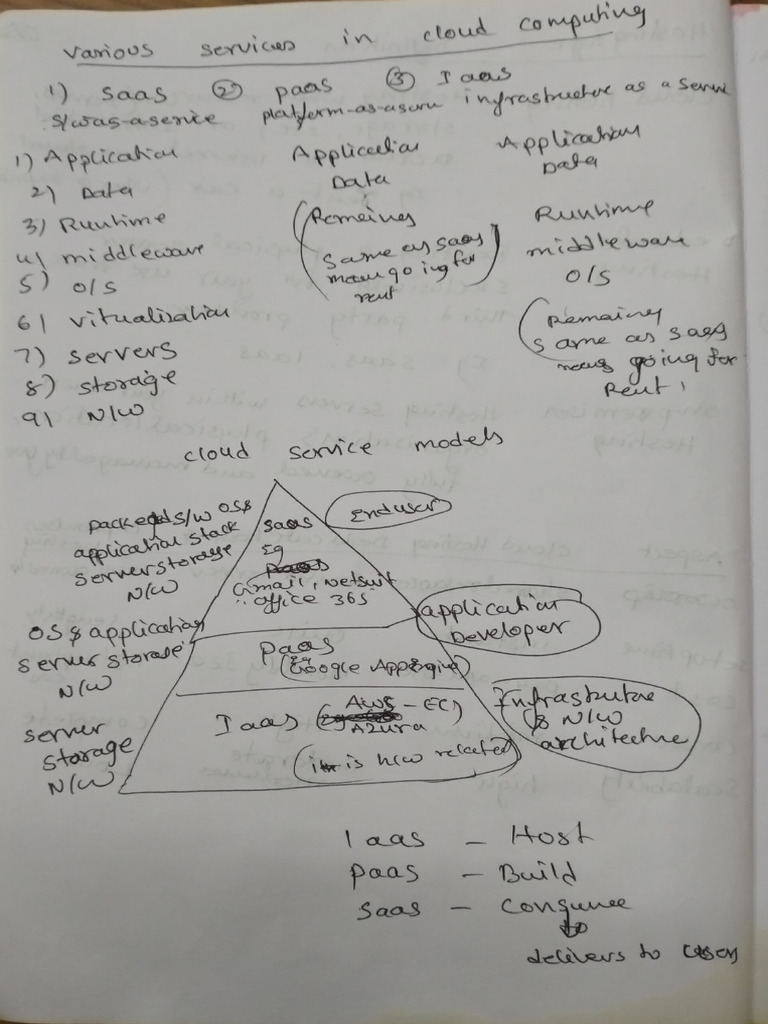 various services in cloud computing
1) saas ② paas ③ Iaas
s/w as-a-service platform-as-a infrastructure as a
1) Application Application Application
2) Data Data Data
3) Runtime (Remaeing Runtime
4) middleware same as saas middleware
5) O/S going for O/S
rent)
6) vitualisation (Remaining
7) servers same as saas
8) storage going for
9) N/W Rent)
cloud service models
packeged s/w OS &
application stack
server storage
N/W
saas
Eg
Gmail, Netsuit
office 365
Enduser
OS & application
server storage
N/W
paas
(Google AppEngine)
application
Developer
server
storage
N/W
Iaas (AWS - EC)
Azura
is h/w related
Infrastruture
& N/W
architecture
Iaas - Host
paas - Build
saas - Consumee
delivers to users